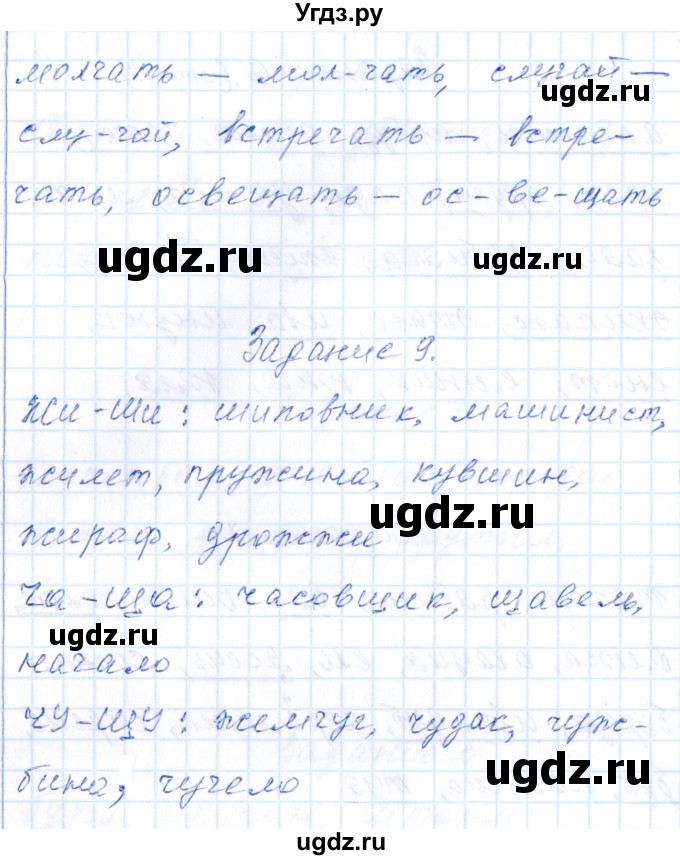 Угдз.ру
молчать – мол-чать, случай –
ugdz.ru
слу-чай, встречать – встре-
чать, освещать – ос-ве-щать
ugdz.ru ugdz.ru
Задание 9.
жи-ши: шиповник, машинист,
жилет, пружина, кувшин,
ugdz.ru
жираф, дрожжи
Ча-ща: часовщик, щавель,
ugdz.ru
начало
ЧУ-ЩУ: жемчуг, чудак, чуж-
ugdz.ru
бина, чучело
Угдз.ру